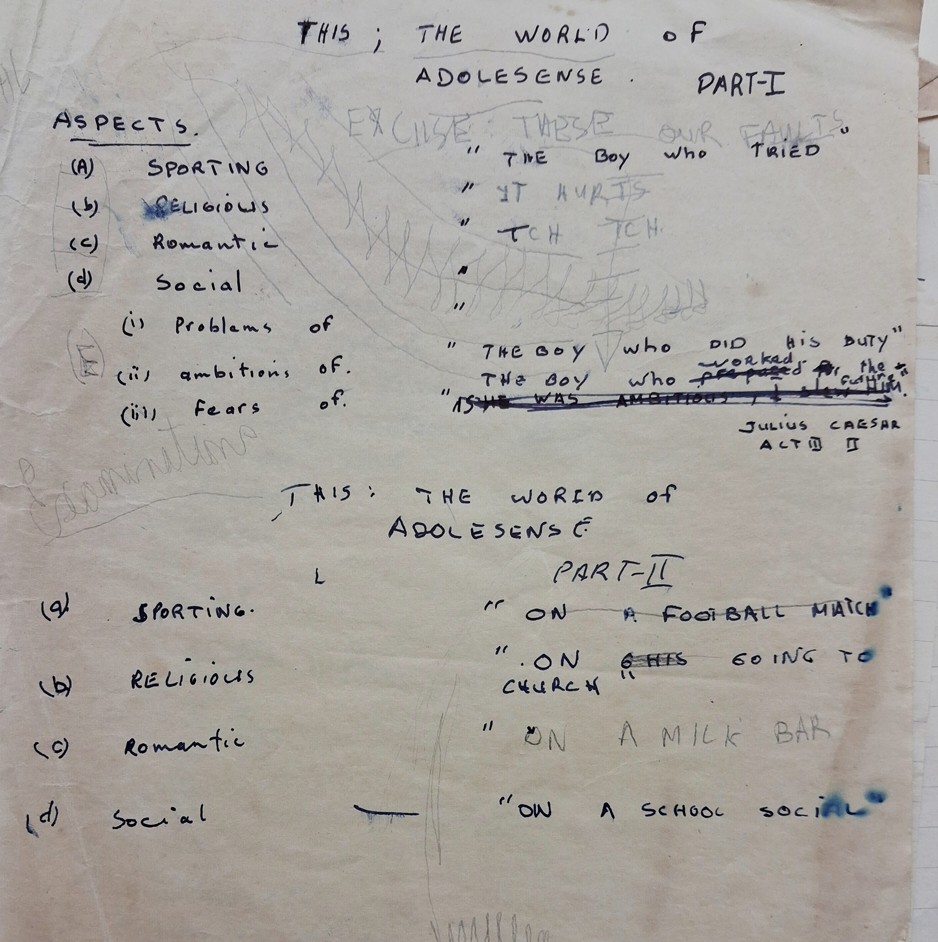 THIS ; THE WORLD OF
ADOLESENSE .
PART-I
ASPECTS.
EXCUSE THESE OUR FAULTS
(A) SPORTING " THE BOY WHO TRIED"
(b) RELIGIOUS " IT HURTS
(c) Romantic " TCH TCH.
(d) Social "
"
(i) Problems of " THE BOY WHO DID HIS DUTY"
(ii) ambitions of. THE BOY WHO worked prepared for the future"
(iii) Fears of. "AS HE WAS AMBITIOUS, I SLEW HIM.
JULIUS CAESAR
ACT III II
THIS: THE WORLD of
ADOLESENSE
PART-II
(a) SPORTING. " ON A FOOTBALL MATCH"
(b) RELIGIOUS " ON GOING TO
CHURCH "
(c) Romantic " ON A MILK BAR
(d) Social — "ON A SCHOOL SOCIAL"